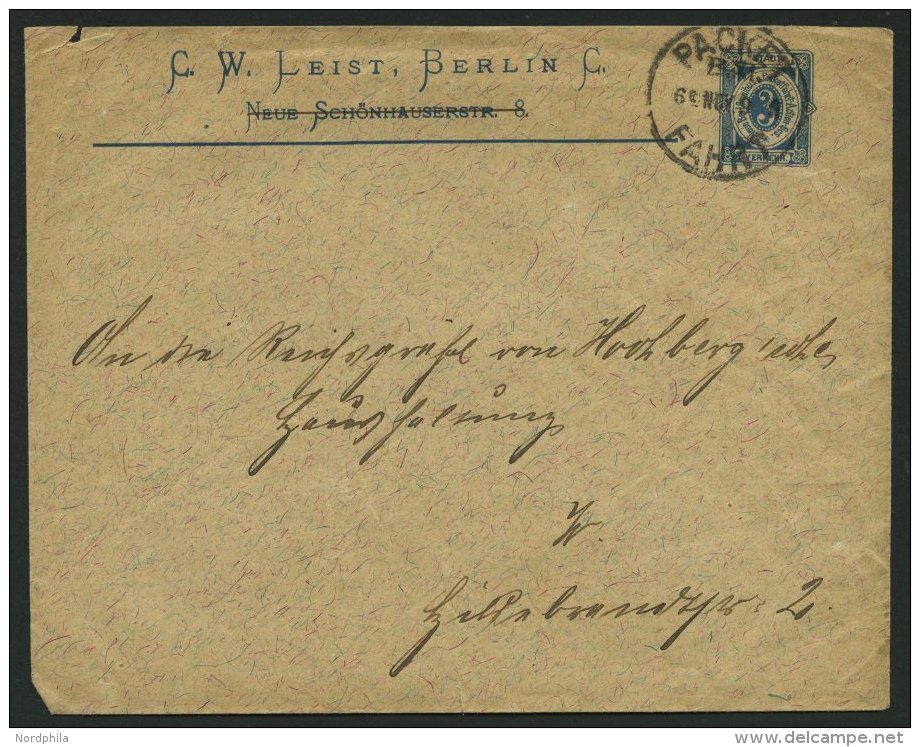 C. W. LEIST, BERLIN C.
NEUE SCHÖNHAUSERSTR. 8.
PACKET
FAHRT
STADT
3
VERKEHR.
An die Reichsgräfl von Hochberg'sche
Haushaltung
W.
Hildebrandtstr. 2.
Nordphila
www.delcampe.net